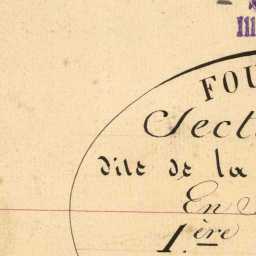 III
FOU
Sect
dite de la
En
1.ère